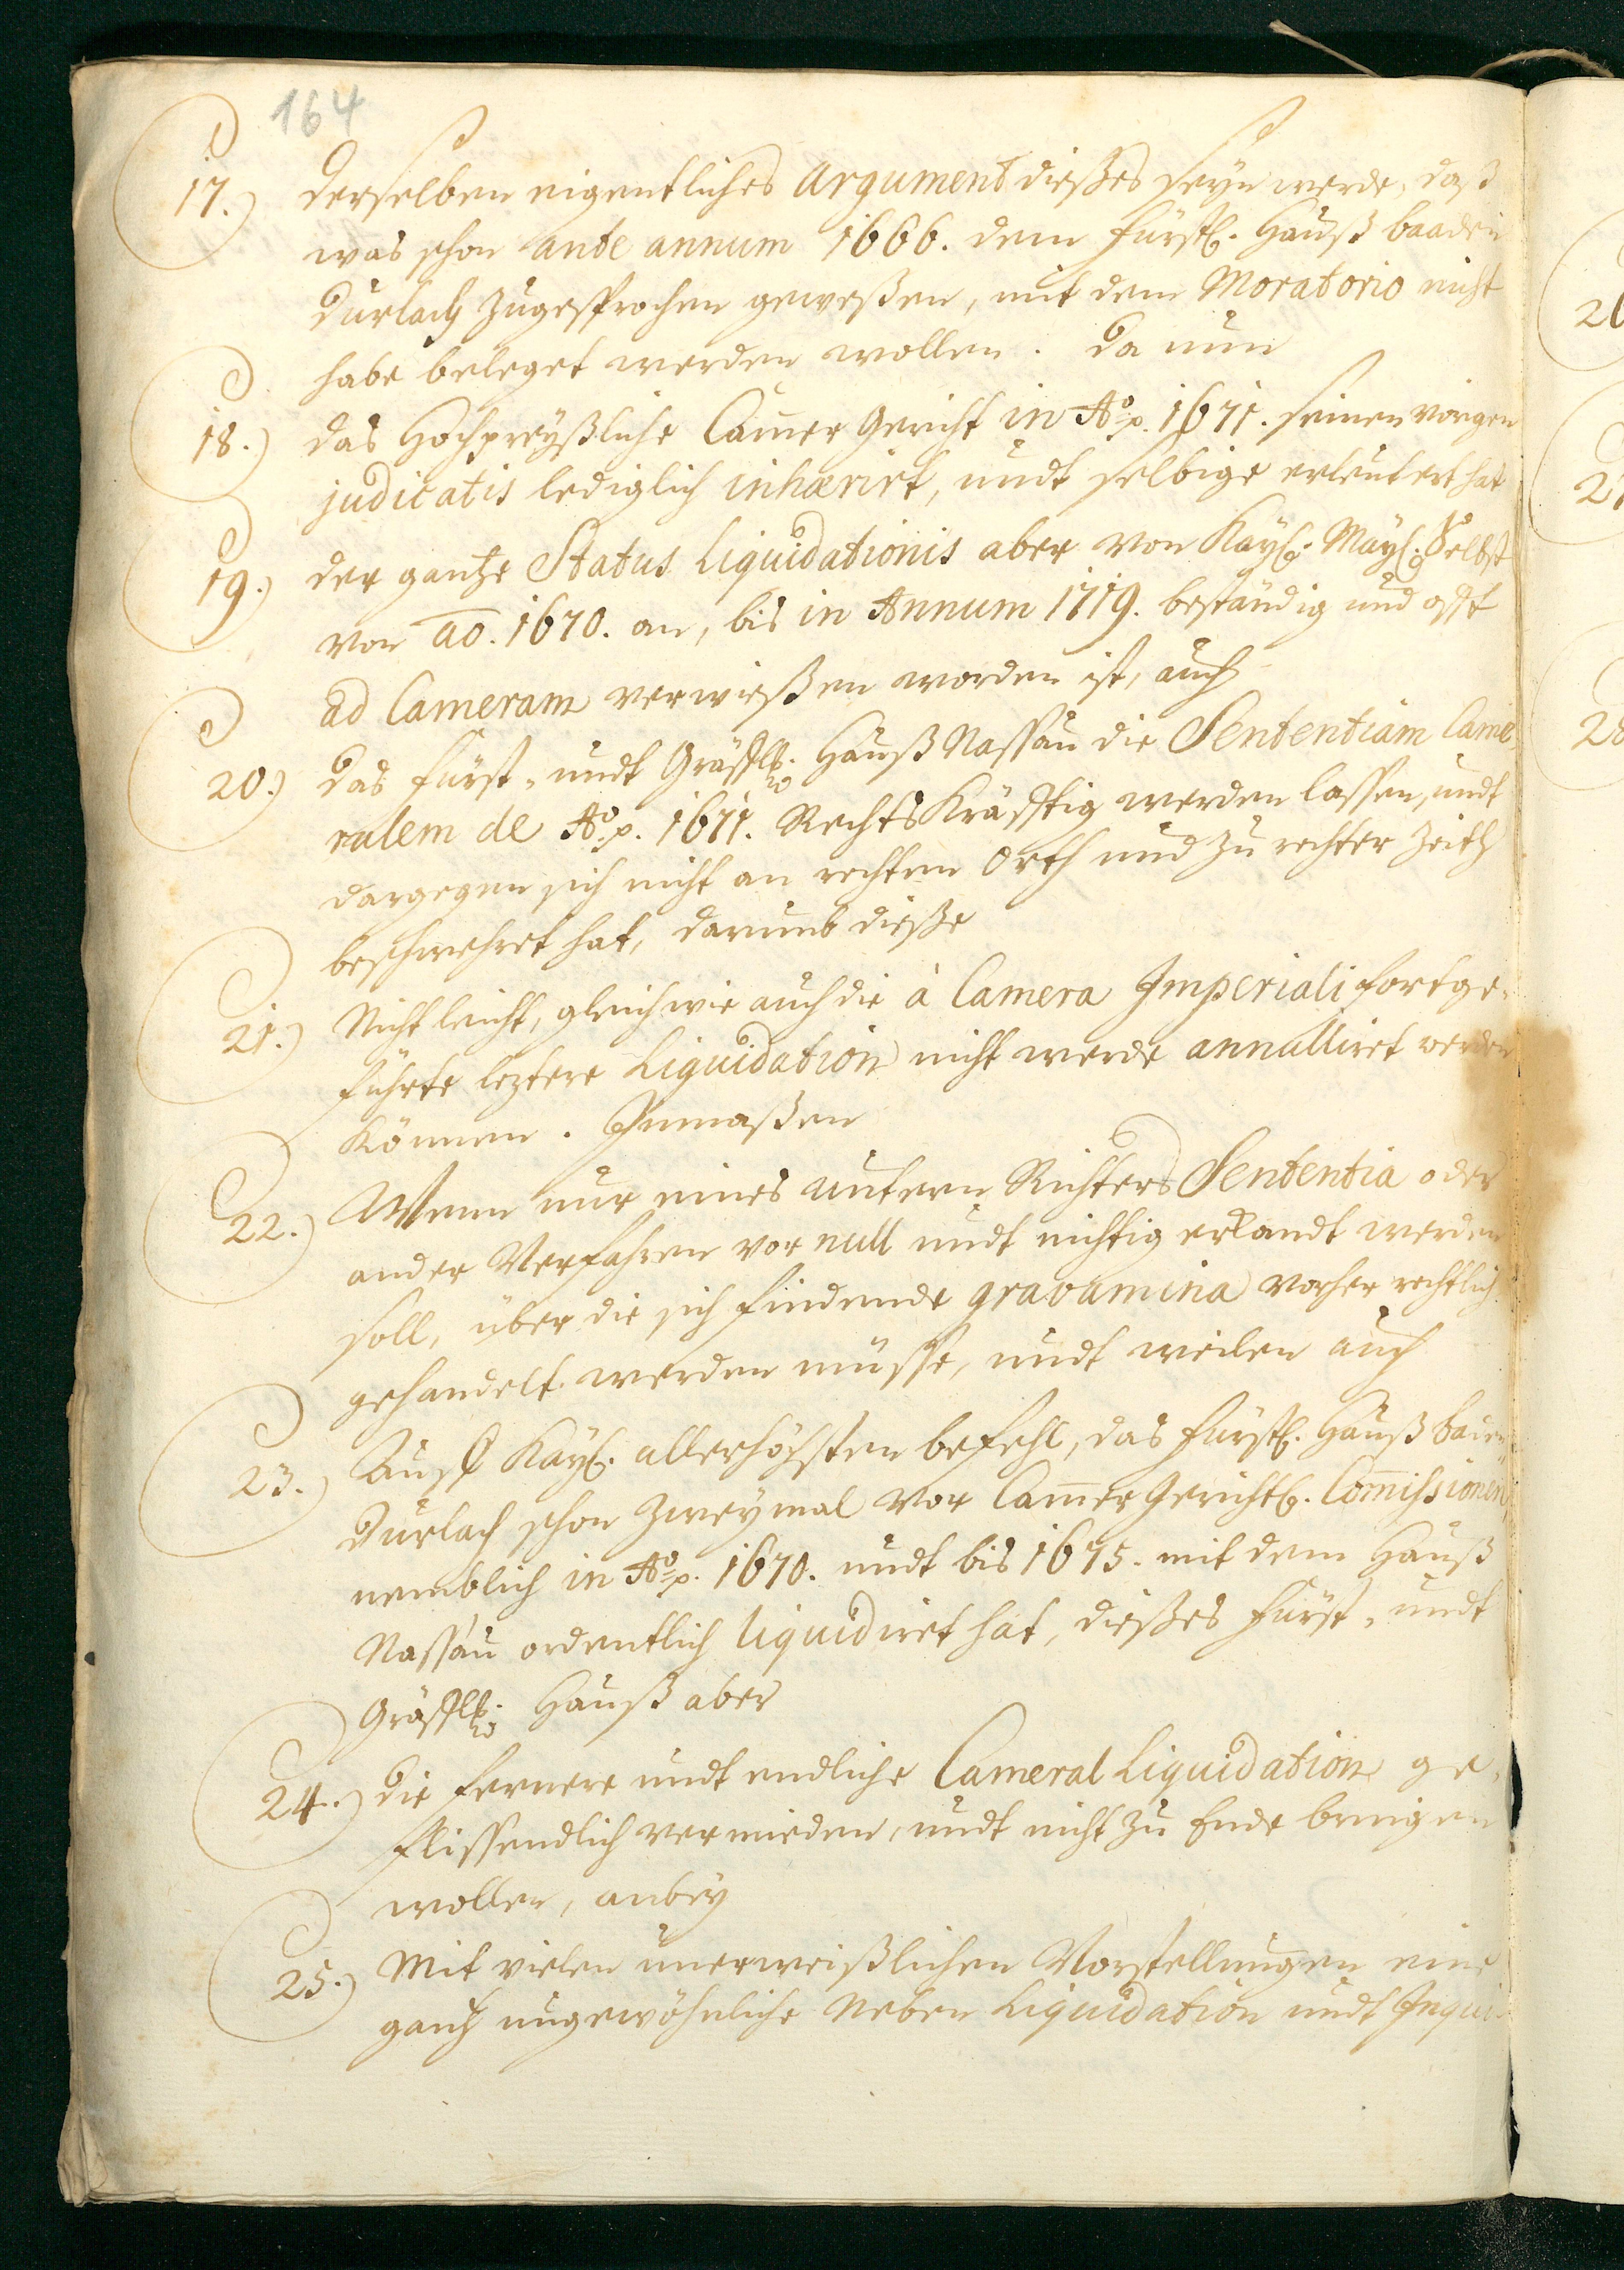 164
17.) Derselben eigentliches Argument dießes seyn werde, daß
was schon ante annum 1666. dem Fürstl. Hauß Baaden
Durlach zugesprochen geweßen, mit dem Moratorio nicht
habe beleget werden wollen. Da nun
18.) das Hochpreyßliche Cam̄er Gericht in Aº. p. 1671. seinen vorigen
judicatis lediglich inhærirt, undt selbige erleutert hat
19.) der gantze Status Liquidationis aber von Kayl. Mayl. Selbst
von ao. 1670. an, bis in Annum 1719. beständig und offt
ad Cameram verwießen worden ist, auch
20.) Das Fürst- undt Gräffl. Hauß Nassau die Sententiam Came
ralem de Aº. p. 1671. Rechts Kräfftig werden lassen, undt
dargegen sich nicht an rechtem Orth und zu rechter Zeith
beschwehret hat, darumb dieße
21.) Nicht leicht, gleichwie auch die à Camera Imperiali fortge-
führte leztere Liquidation nicht werde annulliret werden
können. Inmaßen
22.) Wenn nur eines untern Richters Sententia oder
ander Verfahren vor null undt nichtig erkandt werden
soll, über die sich findende gravamina vorher rechtlich
gehandelt werden müsse, undt weilen auch
23.) Auf Kayl. allerhöchsten befehl, das Fürstl. Hauß Baden
Durlach schon zweymal vor Cam̄er Gerichtl. Com̄issionen,
nemblich in Aº. p. 1670. undt bis 1675. mit dem Hauß
Nassau ordentlich liquidiret hat, dießes Fürst- undt
Gräffl. Hauß aber
24.) Die fernere undt endliche Cameral Liquidation ge-
flissendlich vermieden, undt nicht zu Ende bringen
wollen, anbey
25.) Mit vielen unerweißlichen Vorstellungen eine
gantz ungewöhnliche Neben Liquidation undt Inqui-